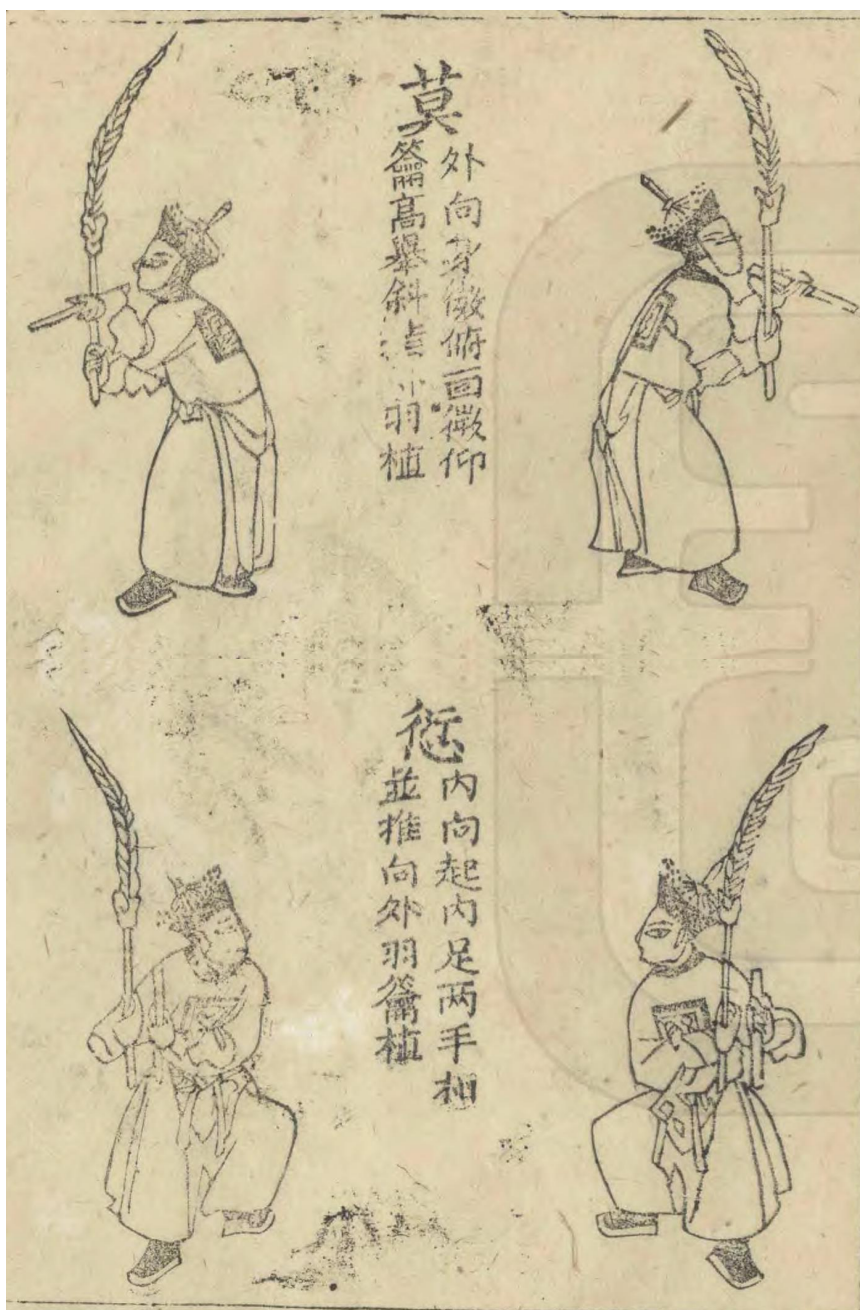 莫
外向身微俯面微仰
籥髙舉斜羽植
愆
内向起内足两手相
並推向外羽籥植